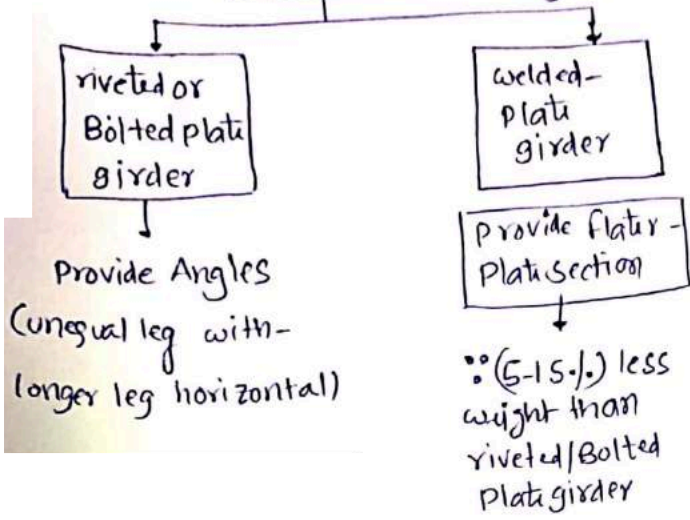 riveted or
Bolted plate
girder
Provide Angles
(unequal leg with-
longer leg horizontal)
welded-
plate
girder
provide flater-
Plate section
∵ (5-15%) less
weight than
riveted/Bolted
Plate girder